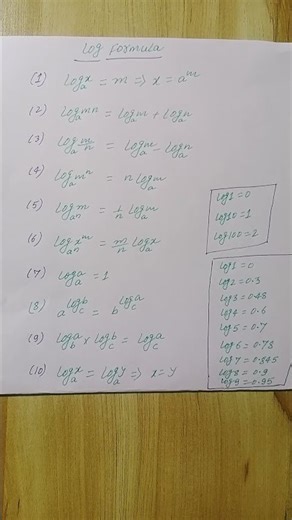 Log Formula
(1) logₐx = m ⇒ x = aᵐ
(2) logₐmn = logₐm + logₐn
(3) logₐ m/n = logₐm - logₐn
(4) logₐmⁿ = n logₐm
(5) log_aⁿ m = 1/n logₐm
(6) log_aⁿ xᵐ = m/n logₐx
(7) logₐa = 1
(8) a^(log_c b) = b^(log_c a)
(9) log_b a × log_c b = log_c a
(10) logₐx = logₐy ⇒ x = y
log1 = 0
log10 = 1
log100 = 2
log1 = 0
log2 = 0.3
log3 = 0.48
log4 = 0.6
log5 = 0.7
log6 = 0.78
log7 = 0.845
log8 = 0.9
log9 = 0.95